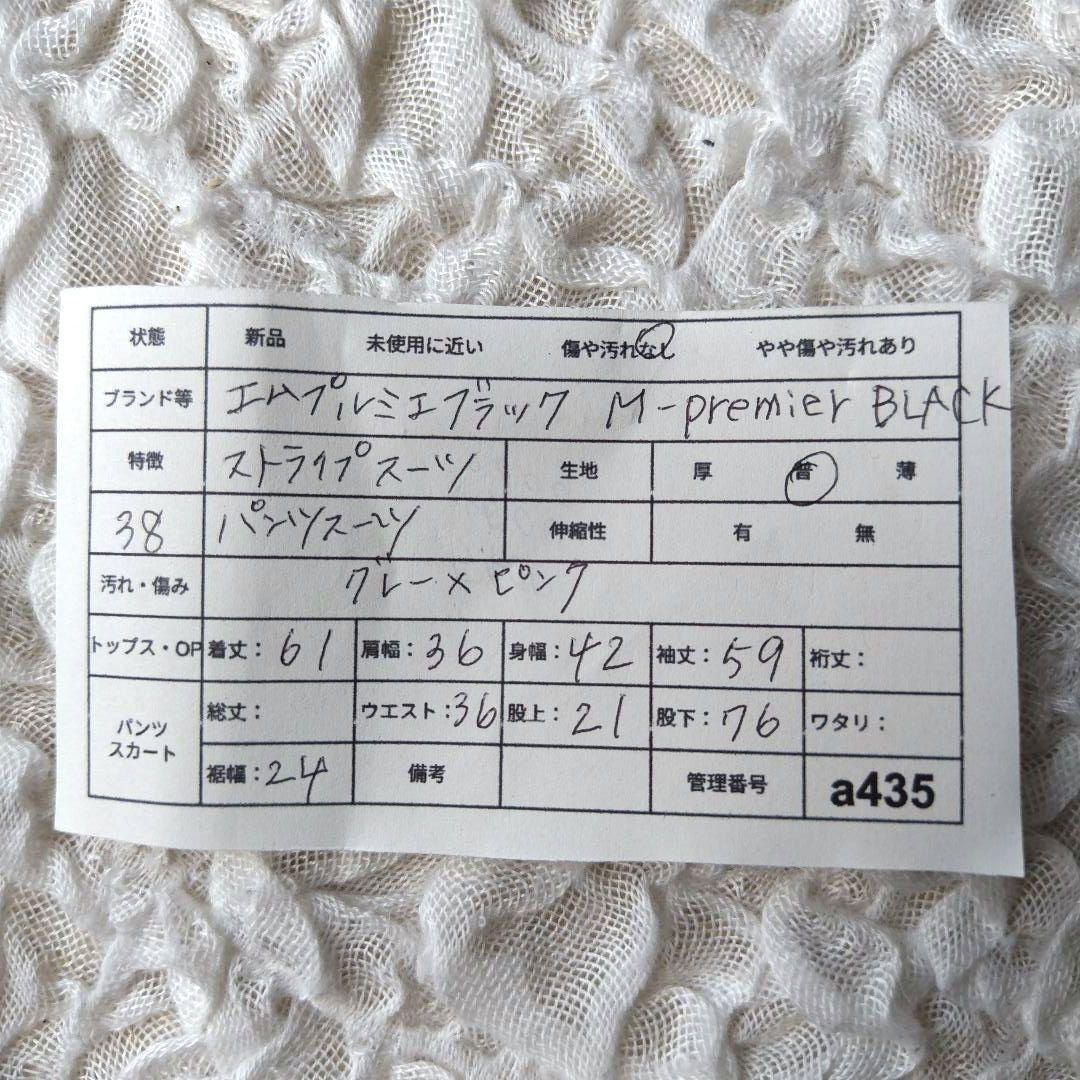 状態 新品 未使用に近い 傷や汚れなし やや傷や汚れあり
ブランド等 エムプルミエブラック M-premier BLACK
特徴 ストライプスーツ 生地 厚 普 薄
38 パンツスーツ 伸縮性 有 無
汚れ・傷み グレー×ピンク
トップス・OP 着丈：61 肩幅：36 身幅：42 袖丈：59 裄丈：
パンツ
スカート
総丈： ウエスト：36 股上：21 股下：76 ワタリ：
裾幅：24 備考 管理番号 a435